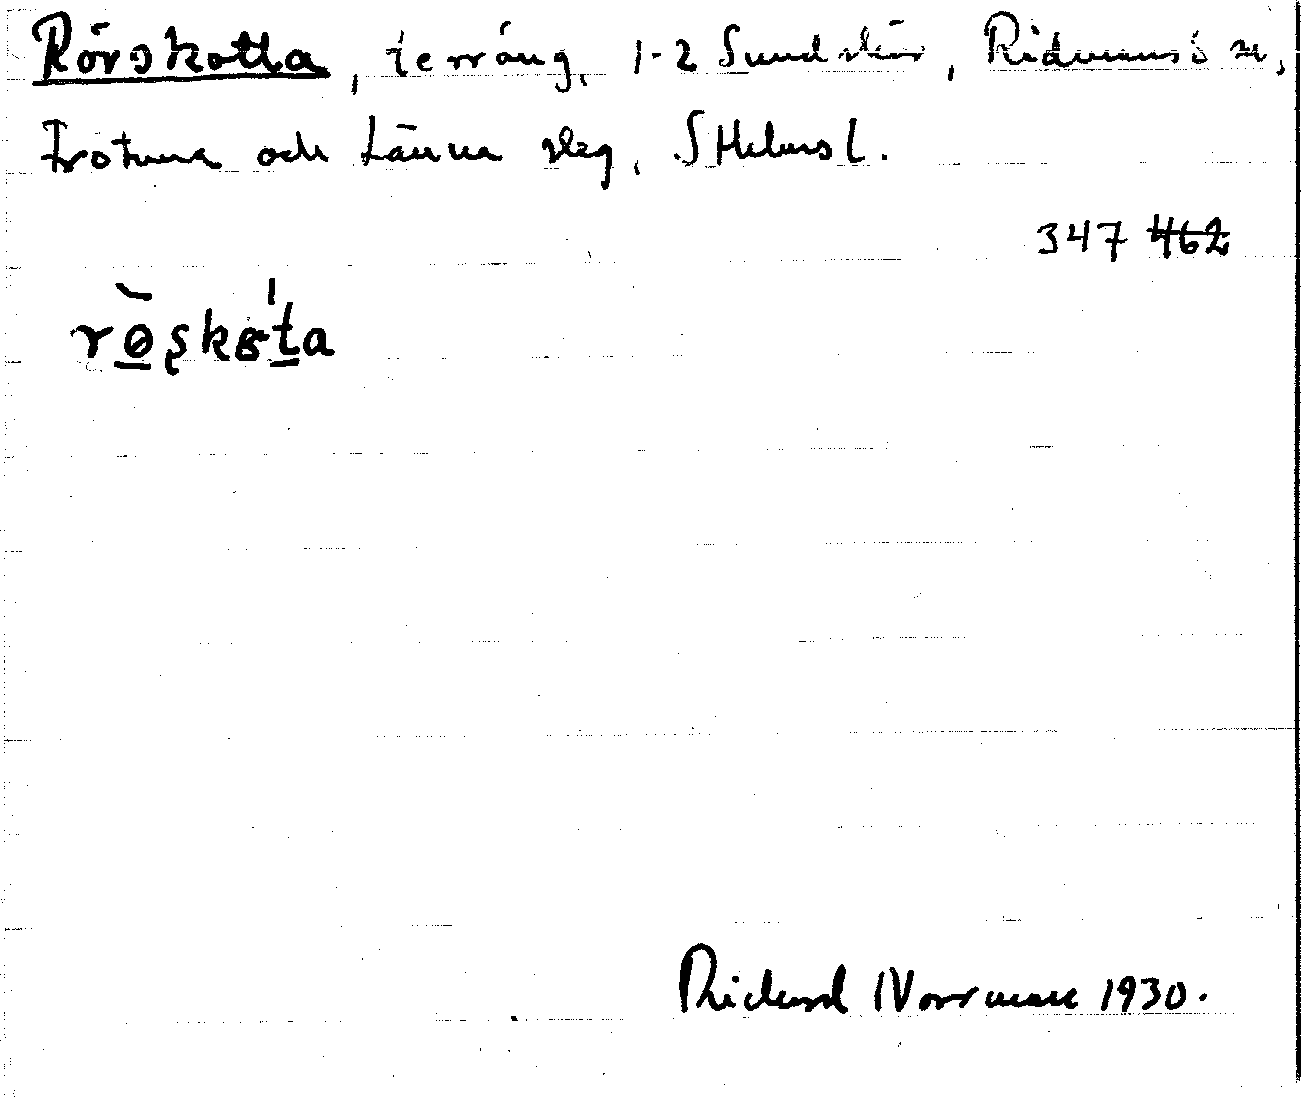 Rörskotta, terräng, 1-2 Sundskär, Ridmansö sn,
Frötuna och Länna skg, Sthlms l.
347 462
rø̀ṣkɞ'ta
Rickard Norrman 1930.